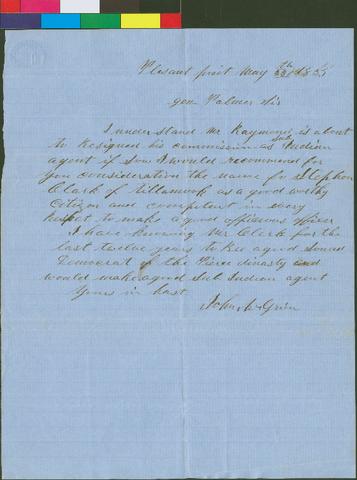 Plesant point May 1855
gen Palmer Sir
I understand Mr Raymond is about
to Resigned his commission as Sub Indian
agent if Sow I would recommend for
you consideration the name fo Stephen
Clark of Tillamook as a good worthy
Citizen and competent in every
to make a good officer
I have knowing Mr Clark for the
last twelve years to bee agood Sound
Democrat of the Pierce dinasty and
would make agood Sub Indian agent
Yours in hast
John